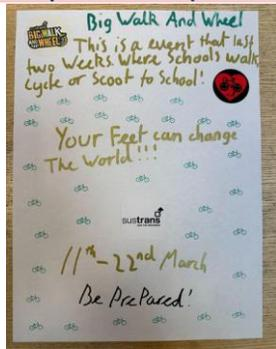 Big Walk And Wheel
BIG WALK AND WHEEL
This is a event that last
two weeks. Where Schools walk,
cycle or Scoot to School!
Your Feet can change
The World!!!
sustrans
11th - 22nd March
Be PrePared!